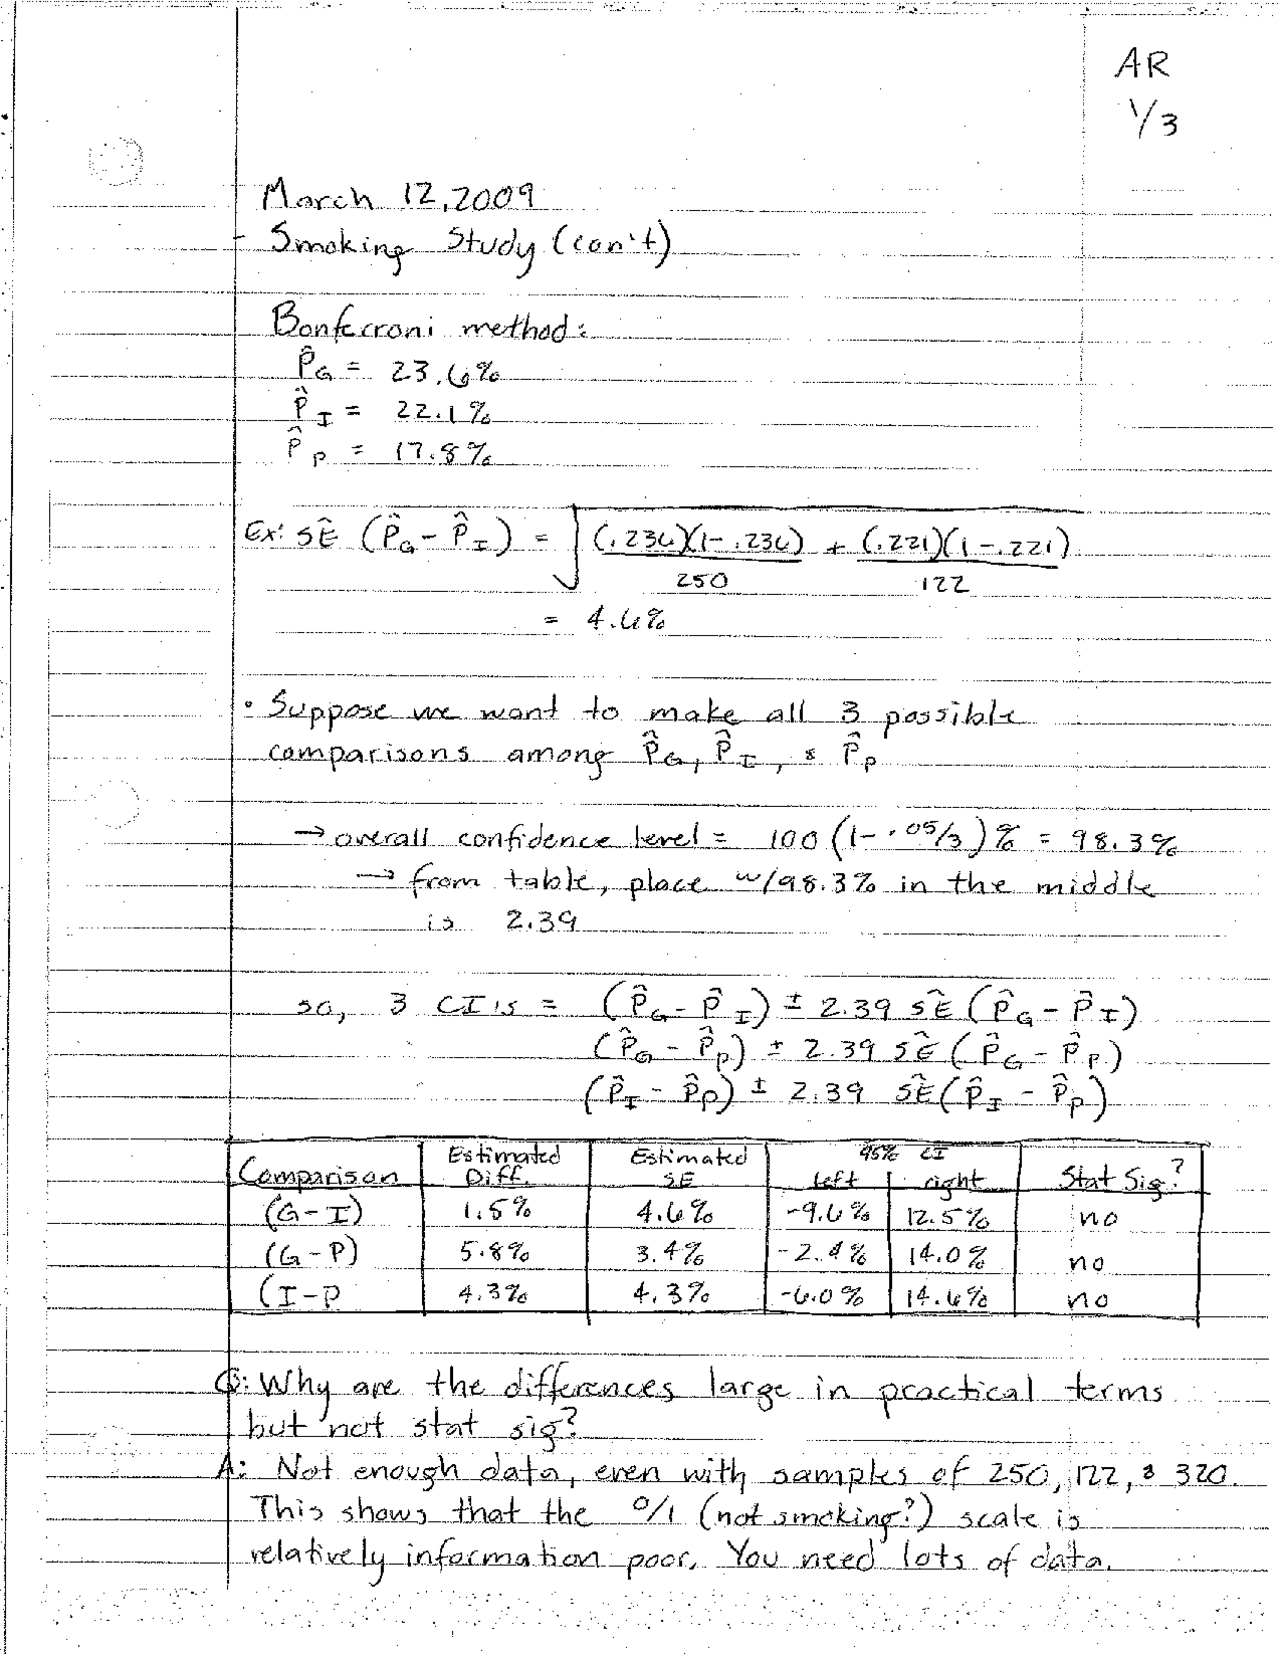 AR
1/3
March 12, 2009
- Smoking Study (con't)
Bonferroni method:
P̂G = 23.6%
P̂I = 22.1%
P̂P = 17.8%
Ex: SÊ (P̂G - P̂I) = √( (.236)(1-.236)/250 + (.221)(1-.221)/122 )
= 4.6%
• Suppose we want to make all 3 possible
comparisons among P̂G, P̂I, & P̂P
→ overall confidence level = 100 (1-.05/3)% = 98.3%
→ from table, place w/98.3% in the middle
is 2.39
so, 3 CI's = (P̂G - P̂I) ± 2.39 SÊ (P̂G - P̂I)
(P̂G - P̂P) ± 2.39 SÊ (P̂G - P̂P)
(P̂I - P̂P) ± 2.39 SÊ (P̂I - P̂P)
Comparison | Estimated Diff. | Estimated SE | 95% CI left | right | Stat Sig?
(G-I) | 1.5% | 4.6% | -9.6% | 12.5% | no
(G-P) | 5.8% | 3.4% | -2.4% | 14.0% | no
(I-P | 4.3% | 4.3% | -6.0% | 14.6% | no
Q: Why are the differences large in practical terms
but not stat sig?
A: Not enough data, even with samples of 250, 122, & 320.
This shows that the 0/1 (not smoking?) scale is
relatively information poor. You need lots of data.